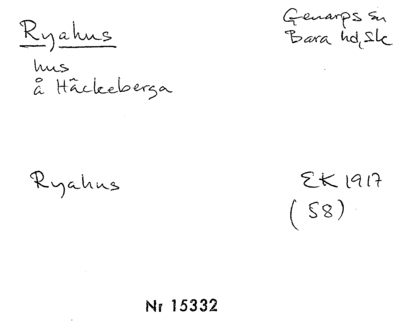 Ryahus
Genarps sn
Bara hd, Sk
hus
å Häckeberga
Ryahus
EK 1917
(58)
Nr 15332